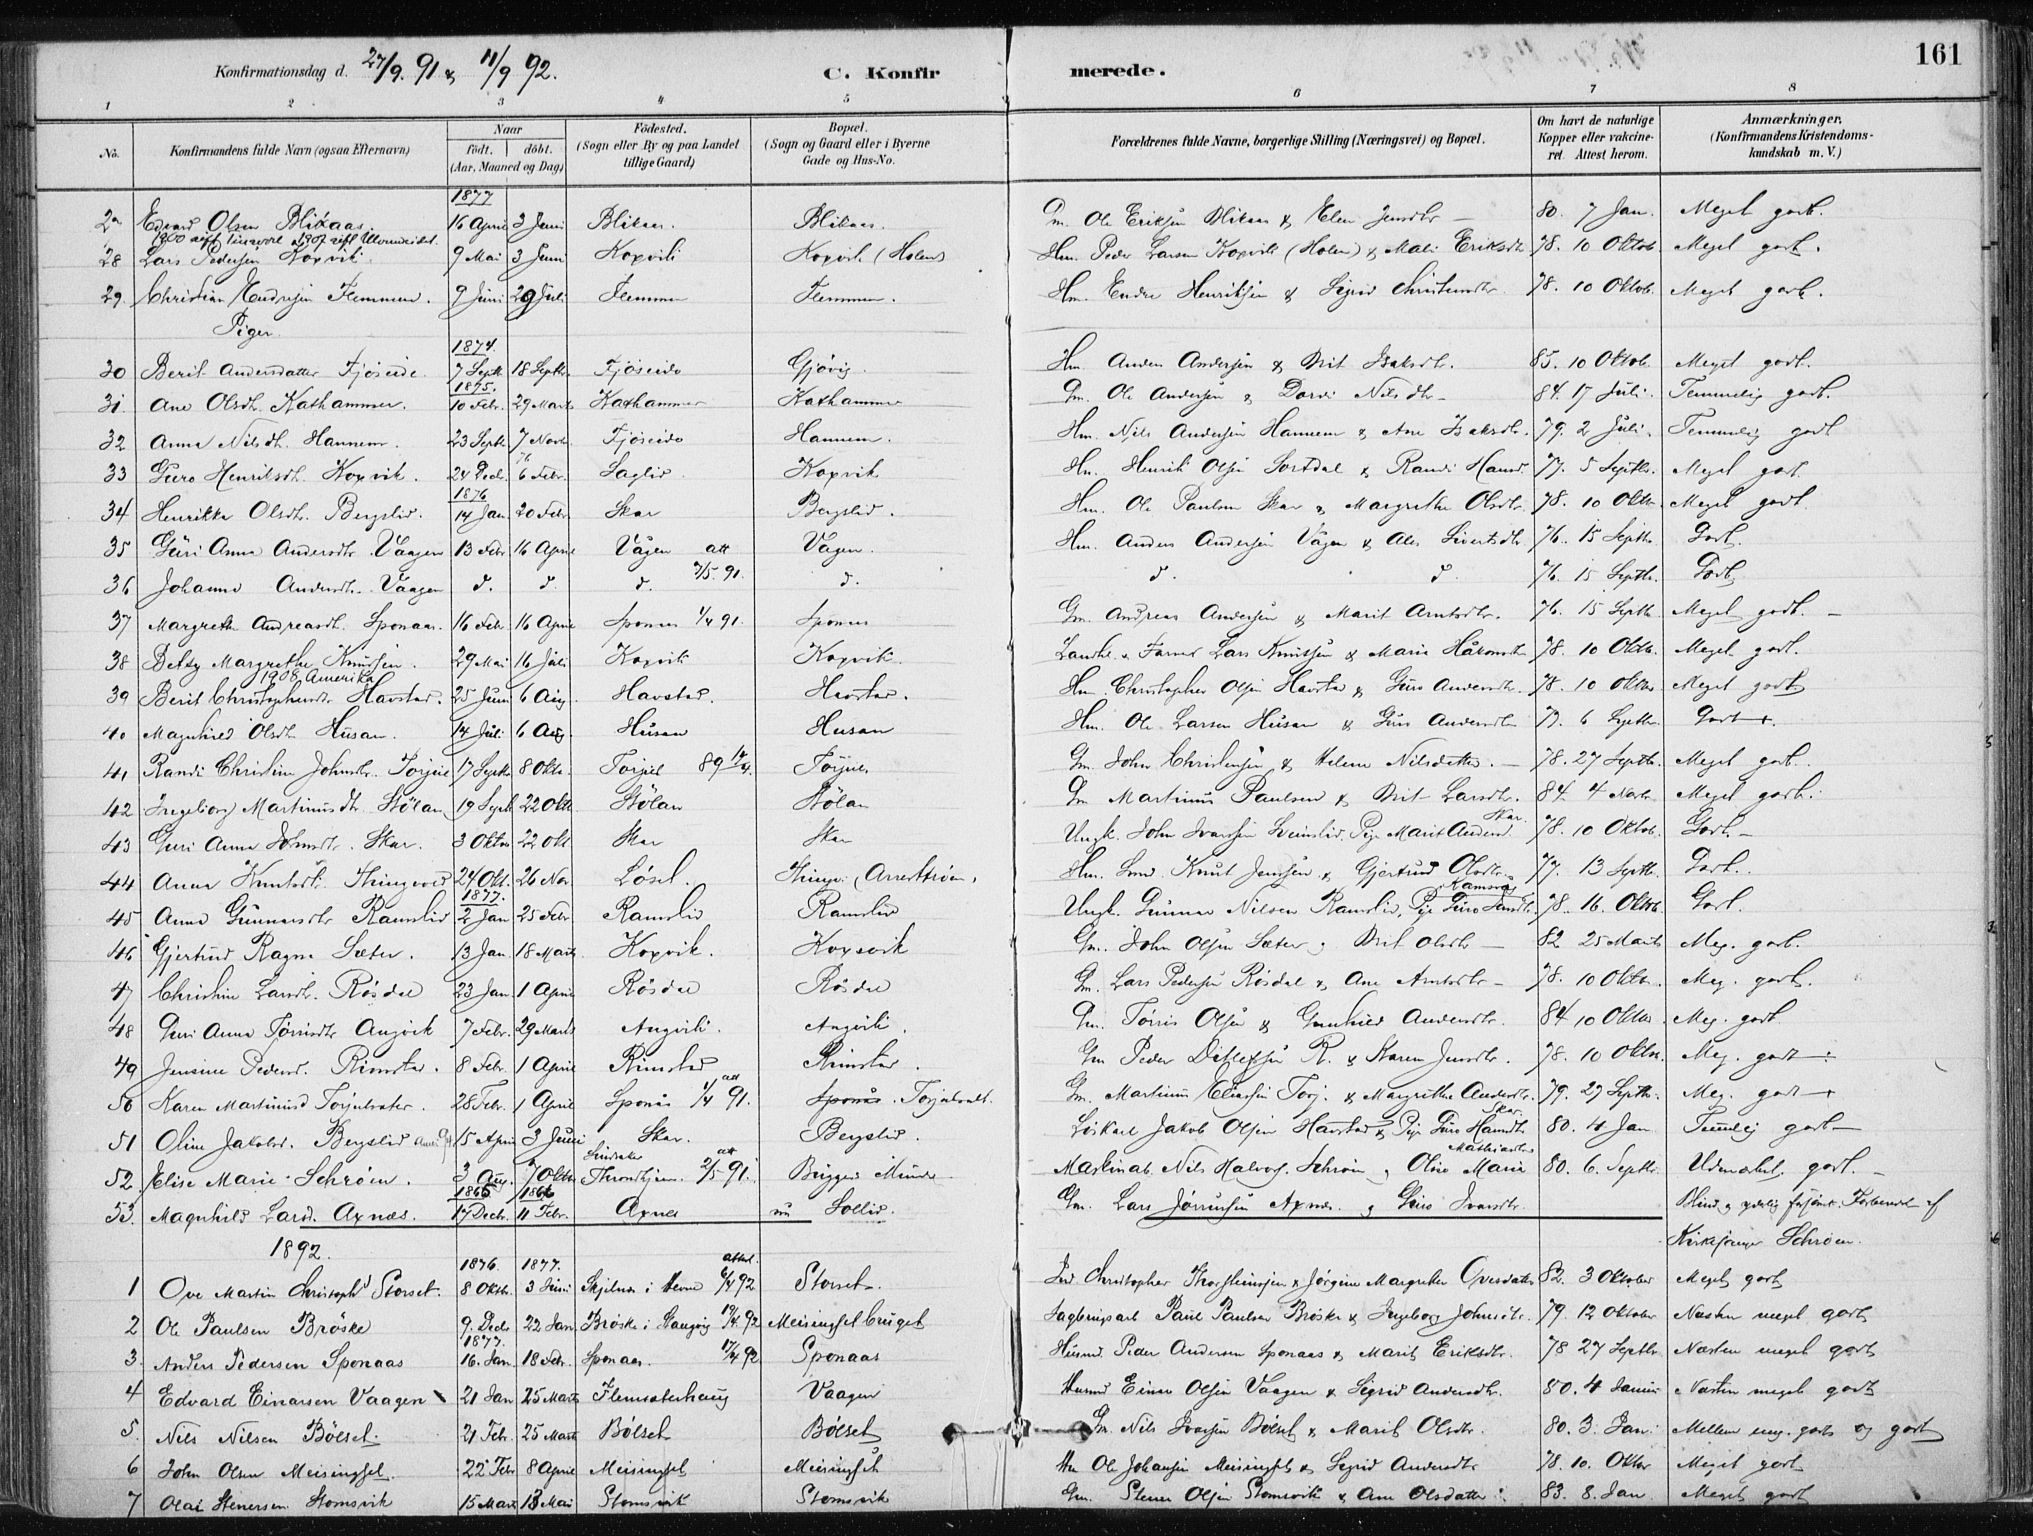 161
Konfirmationsdag d. 27/9. 91 & 11/9 92.
C. Konfirmerede.
1 2 3 4 5 6 7 8
No. Konfirmandens fulde Navn (ogsaa Efternavn) Naar født. døbt. (Aar, Maaned og Dag) Fødested. (Sogn eller By og paa Landet tillige Gaard) Bopæl. (Sogn og Gaard eller i Byerne Gade og Hus-No. Forældrenes fulde Navne, borgerlige Stilling (Næringsvei) og Bopæl. Om havt de naturlige Kopper eller vakcineret. Attest herom. Anmærkninger. (Konfirmandens Kristendomskundskab m. V.)
1877
Edvard Olsen Blikaas 16 April 3 Juni Blikaas. Blikaas. Gm. Ole Eriksen Blikaas & Elen Jensdtr 80. 7 Jan. Meget godt.
28 Lars Pedersen Koxvik 9 Mai 3 Juni Koxvik Koxvik (Holen) Hm. Peder Larsen Koxvik (Holen) & Mali Eriksdt 78. 10 Oktob. Meget godt.
29. Christian Endresen Flemmen. 9 Juni 29 Juli Flemmen Flemmen. Hm. Endre Henriksen & Sigrid 78. 10 Oktob. Meget godt.
Piger
1874.
30 Berit Andersdatter Fjøseide 7 Septr 18 Septr. Fjøseide Gjøvig Hm Anders Andersen & Brit Isaksdtr. 85. 10 Oktob. Meget godt.
1875.
31. Ane Olsdtr. Kathammer. 10 Febr. 29 Marts Kathammer Kathammer Gm. Ole Andersen & Dordi Nilsdtr 84. 17 Juli. Temmelig godt.
32 Anna Nilsdtr. Hannem. 23 Septr. 7 Novbr Fjøseide Hannem. Hm. Nils Andersen Hannem & Ane Isaksdtr. 79. 2 Juli. Temmelig godt
76
33 Guro Henriksdtr. Koxvik. 24 Decbr. 6 Febr. Koxvik Hm. Henrik Olsen & Randi 77. 5 Septbr. Meget godt
1876
34 Henrikke Olsdtr. Bergslid. 14 Jan. 20 Febr. Skar Bergslid. Hm. Ole Paulsen Skar & Margrethe Olsdtr. 78. 10 Oktbr. Meget godt.
35 Guri Anna Andersdtr. Vaagen 13 Febr 16 April Vågen att Vågen. Hm. Anders Andersen Vågen & Ales Sivertsdtr. 76. 15 Septbr. Godt.
36 Johanne Andersdtr. Vaagen d. d. d. 3/5. 91. d. d. d. 76. 15 Septbr. Godt.
37 Margrethe Andreasdt. Sponaas. 16 Febr. 16 April Sponaas 1/4 91. Sponaas Gm. Andreas Andersen & Marit Arntsdtr. 76. 15 Septbr Meget godt.
38 Betsy Margrethe Knutsen. 29 Mai 16 Juli Koxvik Koxvik Lars Knutsen & Marie 78. 10 Oktbr. Meget godt.
1908 Amerika
39 Berit Christophersdtr Havstad. 25 Juni 6 Aug. Havstad. Havstad. Hm. Christopher Olsen Havstad & Guro Andersdtr. 78. 10 Oktbr Meget godt
40 Magnhild Olsdt. Husan. 14 Juli 6 Aug. Husan Husan Hm. Ole Larsen Husan & Guro Andersdtr 6 Septbr. Godt +.
41 Randi Christine Johnsdtr. Torjul 17 Septbr 8 Oktbr. Torjul 89 Torjul. Gm. John Christensen & Helene Nilsdatter. 78. 27 Septbr. Meget godt.
42 Ingeborg Martinusdtr. Stølan 19 Septb 22 Oktbr. Stølan Stølan Gm Martinus Paulsen & Brit Larsdtr. 84. 4 Novbr Meget godt.
43 Guri Anna Johnsdtr. Skar. 3 Oktbr 22 Okt Skar Skar Ungk. John Ivarsen Pige Marit Andersd. Skar. 78. 10 Oktob. Godt.
44 Anna Knutsdtr. Thingvold 24 Okt. 26 Nov. Løset. Hm. Smed Knut Jensen & Gjertrud Olsdtr. 77. 13 Septbr Godt.
1877.
45 Anna Gunnarsdtr Ramslid 2 Jan 25 Febr Ramslid Ramslid Ungk. Gunnar Nilsen Ramslid, Pige Guro 78. 16. Oktob. Godt.
46 Gjertrud Ragna Sæter. 13 Jan. 18 Marts Koxvik. Koxsvik Gm. John Olsen Sæter & Brit Olsdtr 82 25 Marts Meg. godt.
47 Christine Larsdtr. Røsdal 23 Jan. 1 April Røsdal Røsdal Gm. Lars Pedersen Røsdal & Ane Arntsdtr 78. 10 Oktbr. Meg. godt.
48 Guri Anna Tørrisdtr Angvik 7 Febr. 29 Marts Angvik. Angvik. Gm. Tørris Olsen & Gunhild Andersdtr. 84 10 Oktbr. Meg. godt
49 Jensine Pedersd. Rimstad. 8 Febr. 1 April Rimstad Rimstad. Gm Peder Ditlefsen R. & Karen Jensdtr. 78. 10 Oktbr. Meg. godt
50 Karen Martinusd Torjulsæter. 28 Febr. 1 April Sponås att 1/4 91. Sponås. Gm. Martinus Eliasen Torj. & Margrethe Andersdtr. 79. 27 Septbr. Meg. godt +
51 Oline Jakobsd. Bergslid 15 April 3 Juni Skar. Bergslid. Løskarl Jakob Olsen Havstad & Pige Guro Hansdtr. Skar. 80. 4 Jan Temmelig godt
52. Elise Marie Schrøen. 3 Aug. 7 Oktbr Throndhjem. att 2/5 91. Hm. Nils Halvors. Schrøen & Oline Marie Mathiasdtr 80. 6. Septbr. Udmærket godt.
1865 1866
53. Magnhild Larsd. Axnæs. 17 Decbr. 11 Febr. Axnes nu Sollid. Gm. Lars Jørunsen Axnæs. & Guro Ivarsdtr. Blind & yderlig forsømt. Forberedt af
Kirkesanger Schrøen.
1892.
1876. 1877. attest.
1 Ove Martin Christophd Storset. 8 Oktbr. 3 Juni Skjelnes i Hevne 6/4 92 Storset. Christopher Thorsteinsen & Jørgine Margrethe Ovesdatter 82. 3 Oktober Meget godt
2 Ole Paulsen Brøske 9. Decbr 22 Jan Brøske i Stangvig 19/4. 92 Meisingset bruget Sagbrugsarb. Paul Paulsen Brøske & Ingeborg Johnsdtr. 79. 12 Oktober Næsten meget godt
1877.
3. Anders Pedersen Sponaas 16. Jan 18 Febr. Sponaas. 17/4 92 Sponaas Husmd Peder Andersen Sponaas & Marit Eriksdtr. 78 27 Septbr. Næsten meget godt
4 Edvard Einarsen Vaagen 21 Jan 25 Marts Flemsæterhaug Vaagen Husmd Einar Olsen Vaagen & Sigrid Andersdtr. 80. 4 Januar Næsten meget godt
5. Nils Nilsen Bølset. 21 Febr. 25 Marts Bølset Bølset Gm. Nils Ivarsen Bølset & Marit Olsdtr. 80. 3. Jan. Mellem meg. godt og godt
6 John Olsen Meisingset. 22 Febr 8 April Meisingset Meisingset Hm Ole Johansen Meisingset & Sigrid Andersdtr 78. 10. Oktbr Meget godt
7 Olai Stenersen Stomsvik 15 Marts 13 Mai Stomsvik Stomsvik Gm. Stener Olsen Stomsvik & Ane Olsdatter. 83. 8. Jan. Meget godt